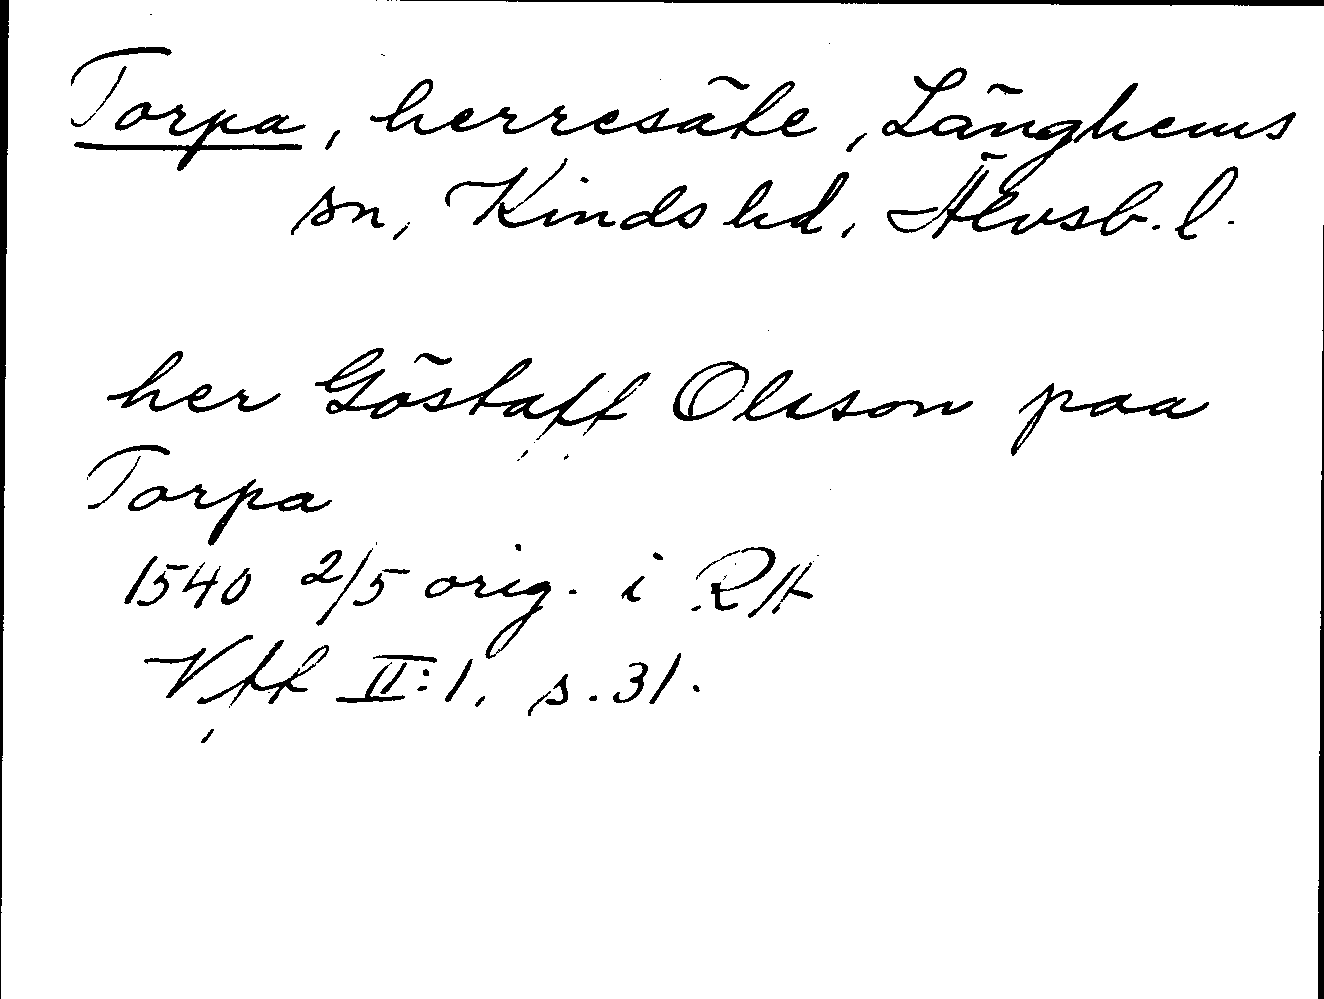 Torpa, herresäte, Länghems
sn, Kinds hd, Älvsb. l.
her Göstaff Olsson paa
Torpa
1540 2/5 orig. i RA
Vff II:1, s. 31.